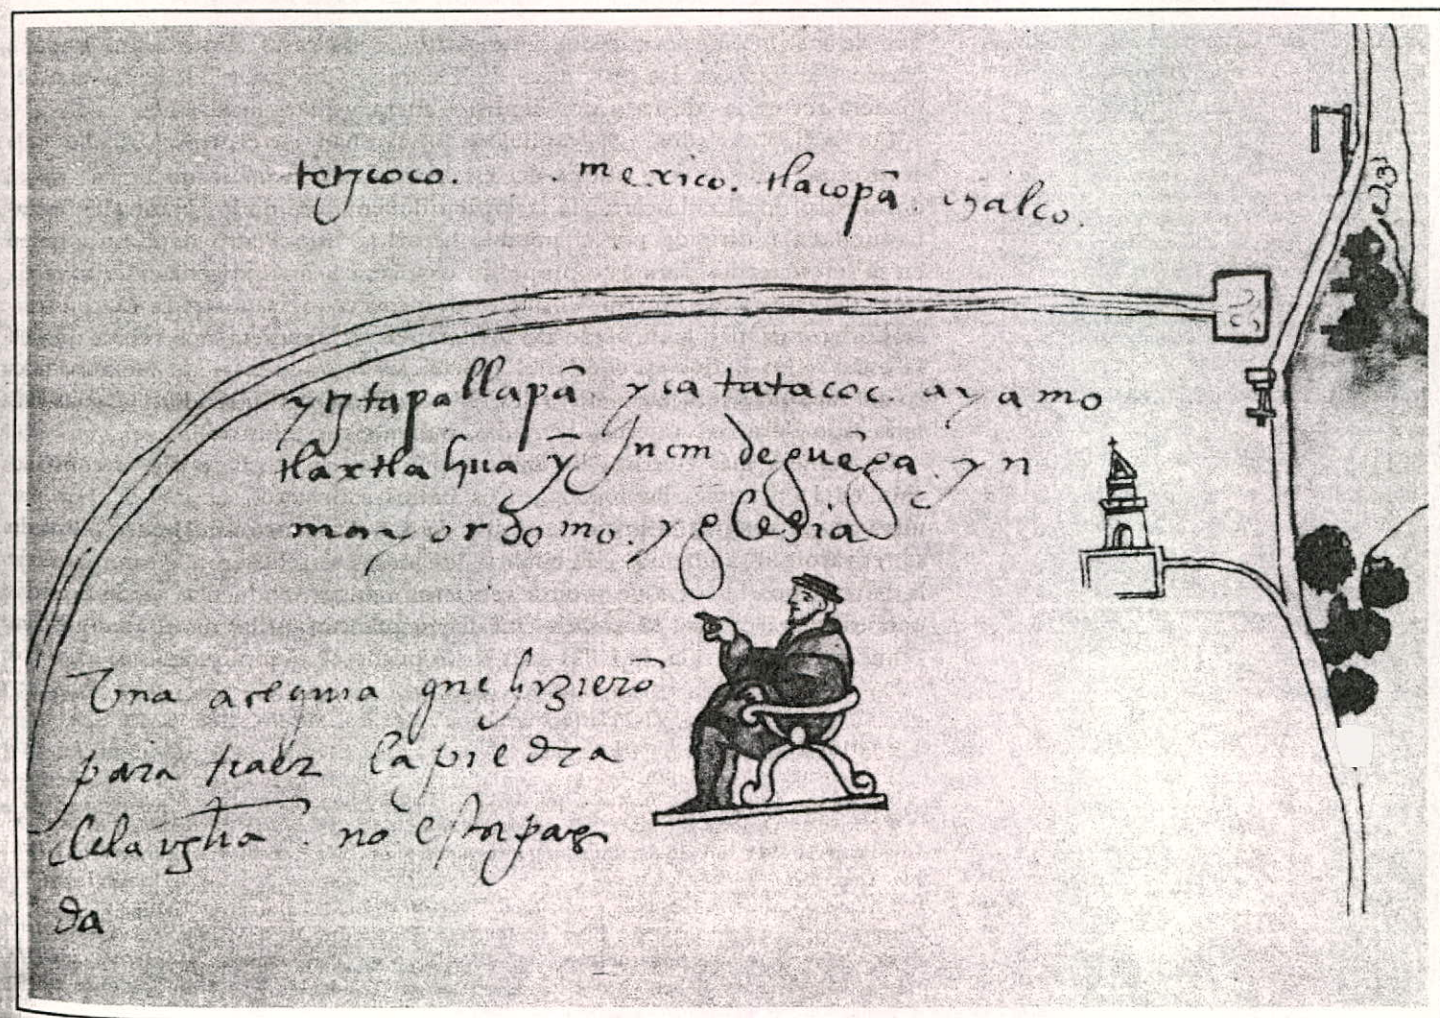 tetzcoco. mexico. tlacopā. chalco.
ytztapallapā yca tatacoc. ayamo
tlaxtlahua ȳ Jncm deguēga. yn
mayordomo. yglesia
Una acequia que hizierō
para traer la piedra
dela yglia. no esta pag
da